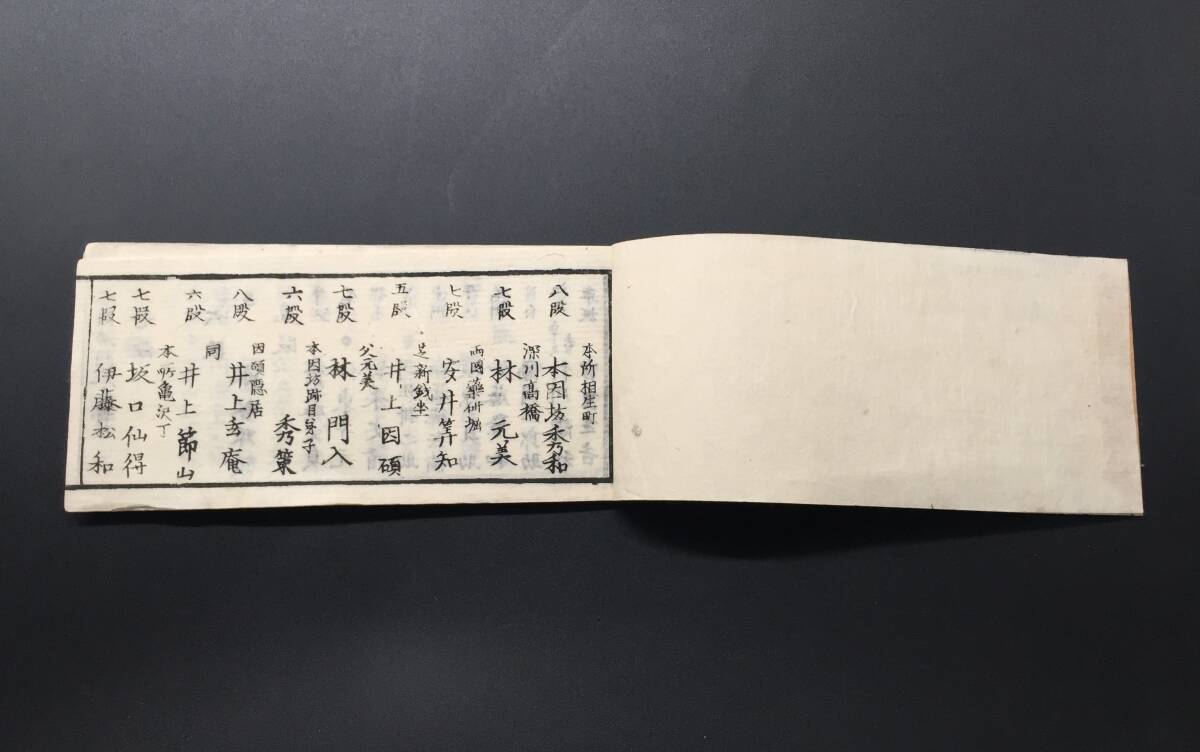 八段 本所相生町 本因坊秀和
七段 深川高橋 林 元美
七段 両國薬研堀 安井算知
五段 芝新銭坐 井上因碩
七段 父元美 林 門入
六段 本因坊跡目弟子 秀策
八段 因碩隠居 井上玄庵
六段 同 井上節山
七段 本所亀沢丁 坂口仙得
七段 伊藤松和